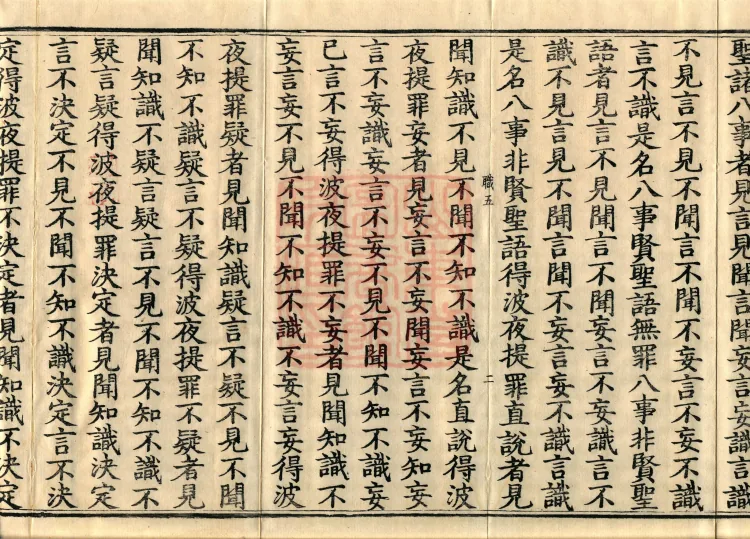 聖語八事者見言見聞言聞妄言妄識言識
不見言不見不聞言不聞不妄言不妄不識
言不識是名八事賢聖語無罪八事非賢聖
語者見言不見聞言不聞妄言不妄識言不
識不見言見不聞言聞不妄言妄不識言識
是名八事非賢聖語得波夜提罪直說者見
職五
二
聞知識不見不聞不知不識是名直說得波
夜提罪妄者見妄言不妄聞妄言不妄知妄
言不妄識妄言不妄不見不聞不知不識妄
已言不妄得波夜提罪不妄者見聞知識不
妄言妄不見不聞不知不識不妄言妄得波
夜提罪疑者見聞知識疑言不疑不見不聞
不知不識疑言不疑得波夜提罪不疑者見
聞知識不疑言疑不見不聞不知不識不
疑言疑得波夜提罪決定者見聞知識決定
言不決定不見不聞不知不識決定言不決
定得波夜提罪不決定者見聞知識不決定